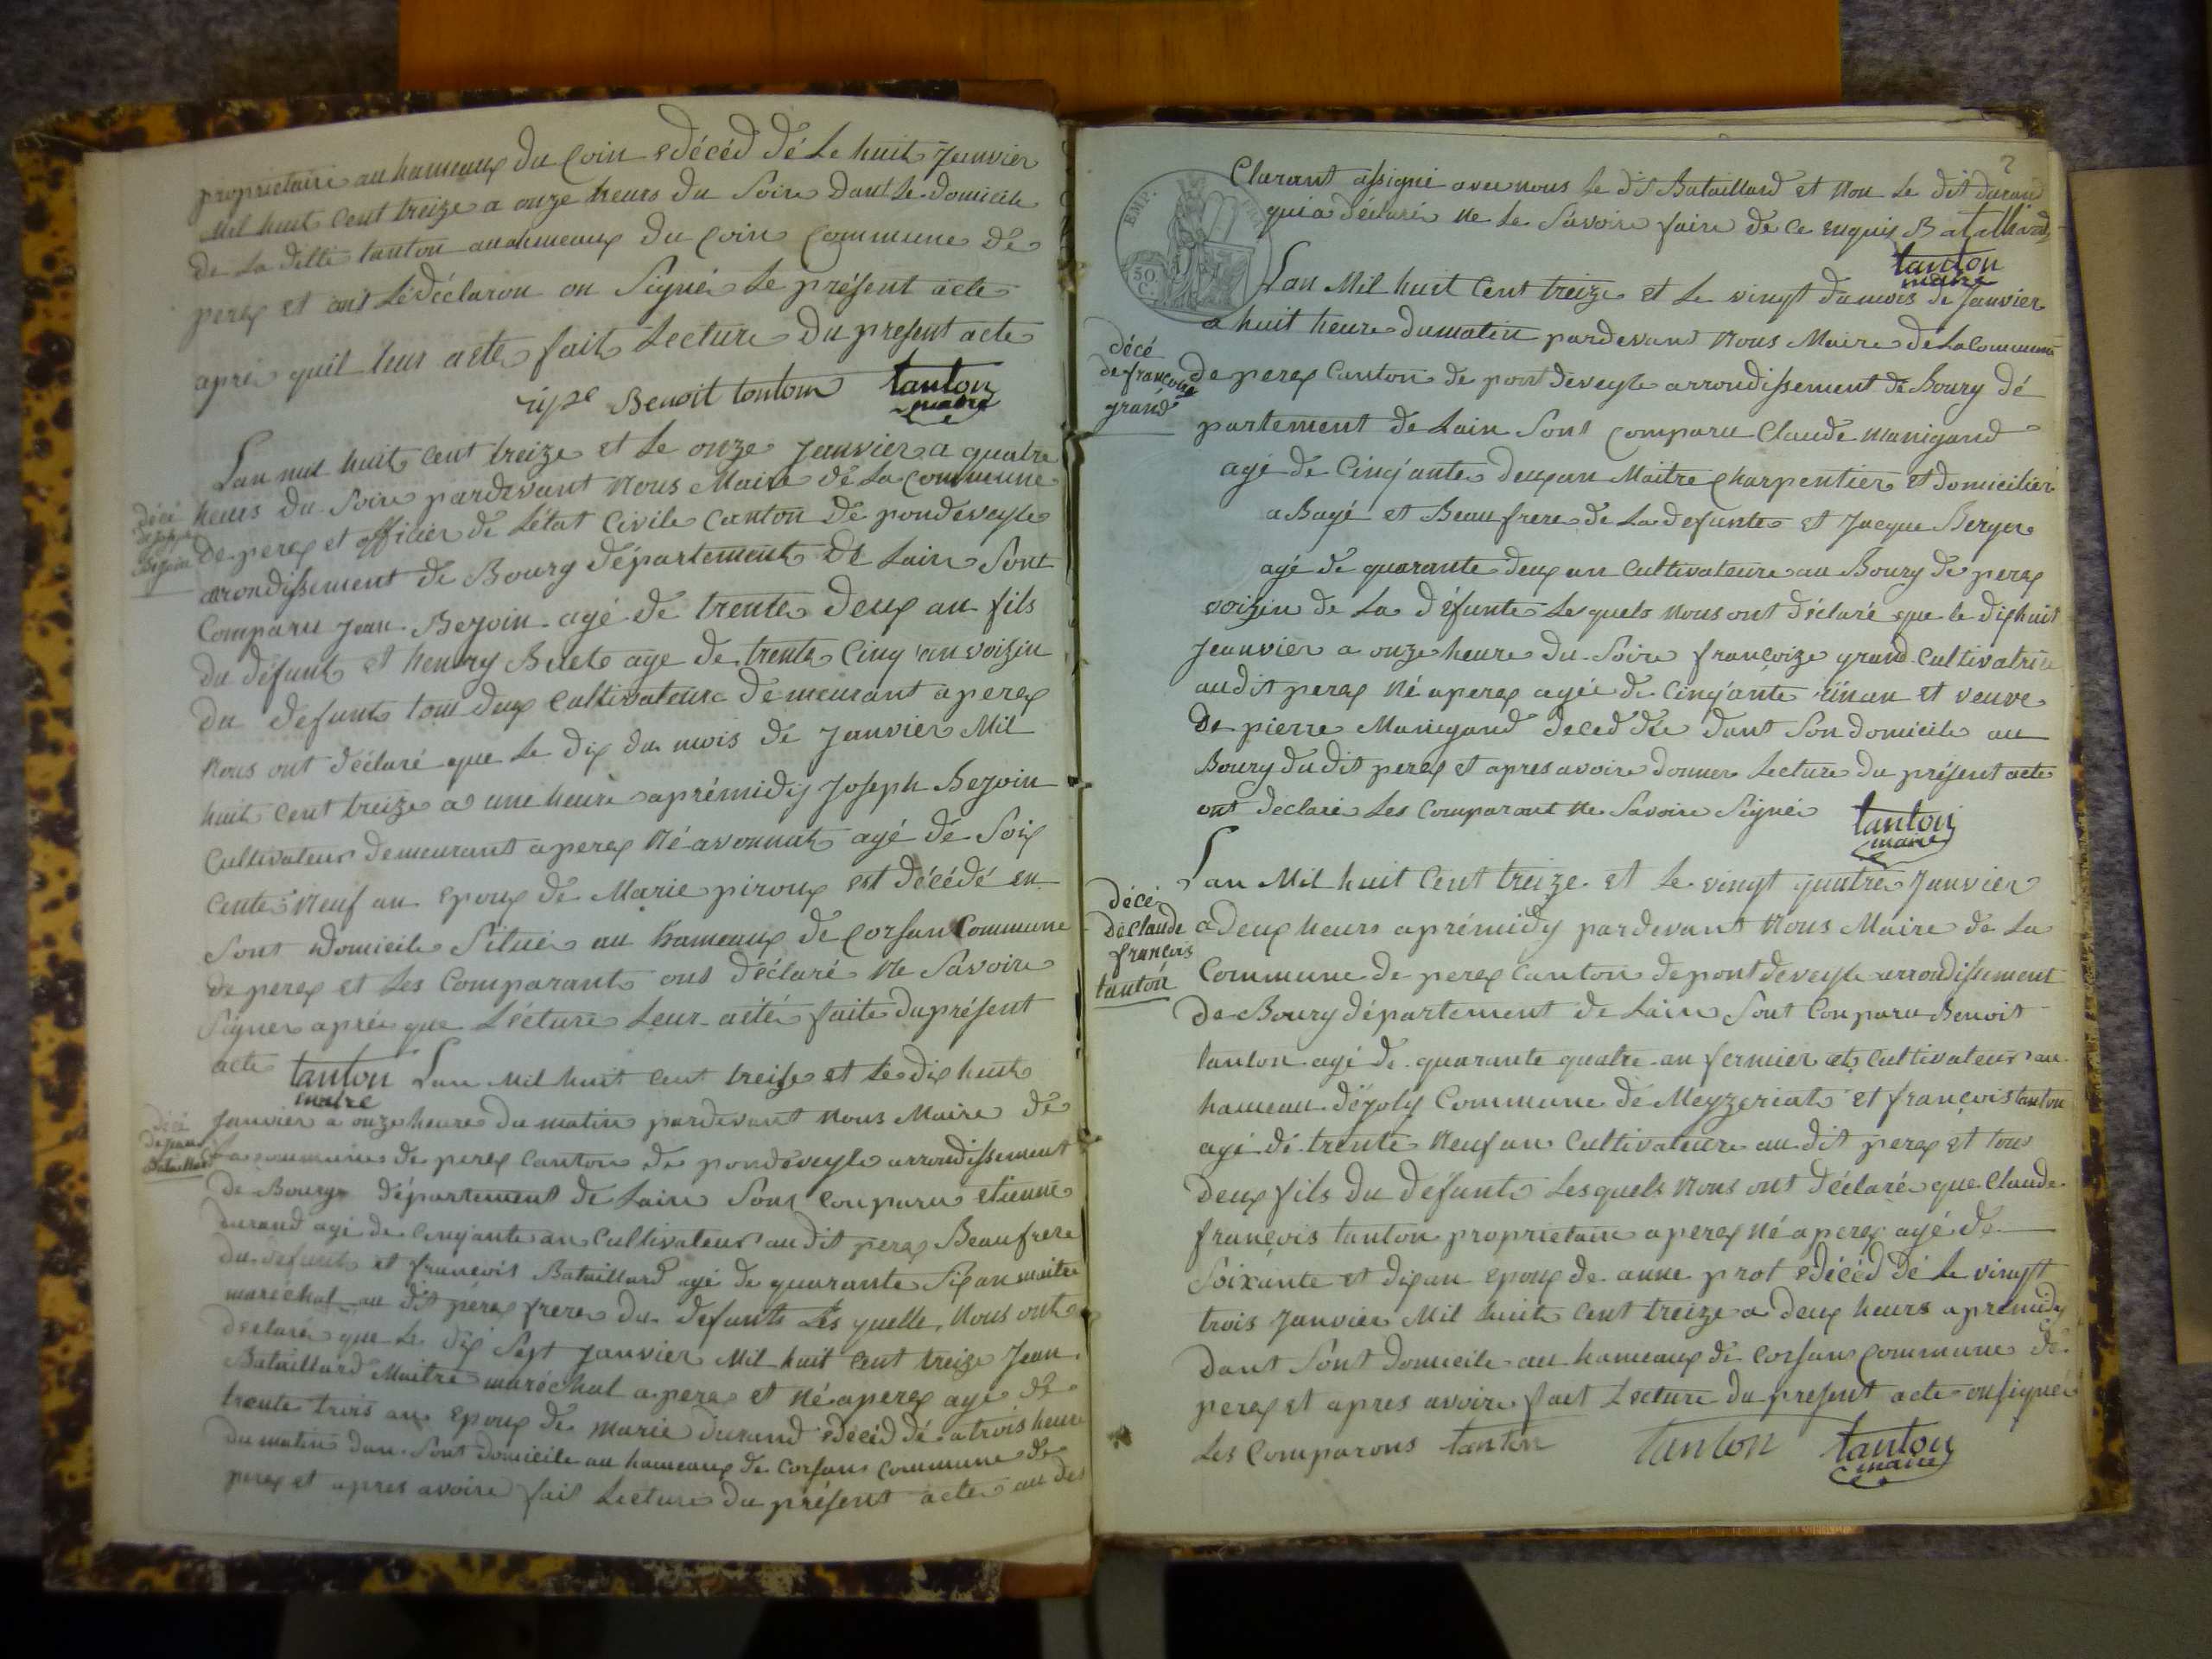 proprietaire au hameaux du Coin edécéd dé Le huit Jeanvier
Mil huit Cent treize a onze heurs du Soire dant Le domicile
de La ditte tanton auahmeaux du Coin Commune dé
perex et ont Lédéclaron on Signé Le présent acte
après quil leur acte fait Lecture du present acte
Benoit tontom tanton
maire
Lan mil huit Cent treize et Le onze Janvier a quatre
heurs du Soire pardevant Nous Maire dé La Commune
décé
de Joseph
Bejoin
de perex et officier de Létat Civile Canton de pondeveyle
arrondissement de Bourg département de Lain Sont
Comparu Jean Bejoin agé de trente deux an fils
du défunt et henry Blete age de trente Cinq an voizin
du defunt tous deux Cultivateurs demeurant a perex
Nous ont déclaré que Le dix du mois de Janvier Mil
huit Cent treize a une heure aprémidy Joseph Bejoin
Cultivateur demeurant a perex Né avonnat agé dé Soix
Cente Neuf an Epoux de Marie piroux est décédé en
Sont Domicile Situé au hameaux de Corsan Commune
de perex et Les Comparant ont déclaré Ne Savoire
Signer après que Lécture Leur acté faite du présent
acte tanton Lan Mil huit Cent treise et Le dix huit
maire
Janvier a onze heure du matin pardevant Nous Maire dé
décé
de jean
Bataillard
La commune de perex Canton de pondeveyle arrondissement
de Bourg département de Lain Sont Comparu etienne
durand agé de Cinqante an Cultivateur au dit perex Beaufrere
du defunt et françois Bataillard agé de quarante Six an maitre
maréchal au dit pérex frere du defunt Les quelle Nous ont
déclaré que Le dix Sept Janvier Mil huit Cent treize Jean
Bataillard Maitre maréchal a perex et Né a perex agé de
trente trois an Epoux de marie durand edécéd dé a trois heure
du matin dan Sont domicile au hameaux de Corsans Commune de
perex et apres avoire fait Lecture du présent acte au dé
2
EMP. FR
50
C.
Clarant assigné avec nous Le dit Bataillard et Non Le dit durand
qui a déclaré Ne Le Savoire faire de Ce enquis Batalliard
tanton
maire
Lan Mil huit Cent treize et Le vingt du mois de Janvier
a huit heure du matin pardevant Nous Maire dé La Commune
décé
de françoise
grand
de perex Canton de pont deveyle arrondissement de Bourg dé
partement de Lain Sont Comparu Claude Manigand
agé de Cinq'ante deux an Maitre Charpentier et domicilier
a Bagé et Beaufrere de La defunte et Jacque Berger
agé de quarante deux an Cultivateure au Bourg de perex
voizin de La défunte Lesquels Nous ont déclaré que le dixhuit
Jeanvier a onze heure du Soire françoize grand Cultivatrice
audit perex Né a perex agée de Cinq'ante un an et veuve
De pierre Manigand decedée dant Son domicile au
Bourg du dit perex et apres avoire donner Lecture du présent acte
ont declaré Les Comparant Ne Savoire Signer
tanton
maire
Lan Mil huit Cent treize et Le vingt quatre Janvier
décé
de Claude
françois
tanton
a deux heurs aprémidy pardevant Nous Maire de La
Commune de perex Canton de pont deveyle arrondissement
de Bourg département de Lain Sont Conparu Benoit
tanton agé de quarante quatre an fermier et Cultivateur au
hameau déjoly Commune de Mezzeriat et françois tanton
agé de trente Neuf an Cultivateure au dit perex et tous
deux fils du défunt Lesquels Nous ont déclaré que Claude
françois tanton proprietaire a perex Né a perex agé de
Soixante et dix an Epoux de anne prot edécéd dé Le vingt
trois Janvier Mil huit Cent treize a deux heurs aprémidy
dant Sont domicile au hameaux de Corsans Commune de
perex et apres avoire fait Lecture du present acte on signé
Les Comparons tanton tanton tanton
maire